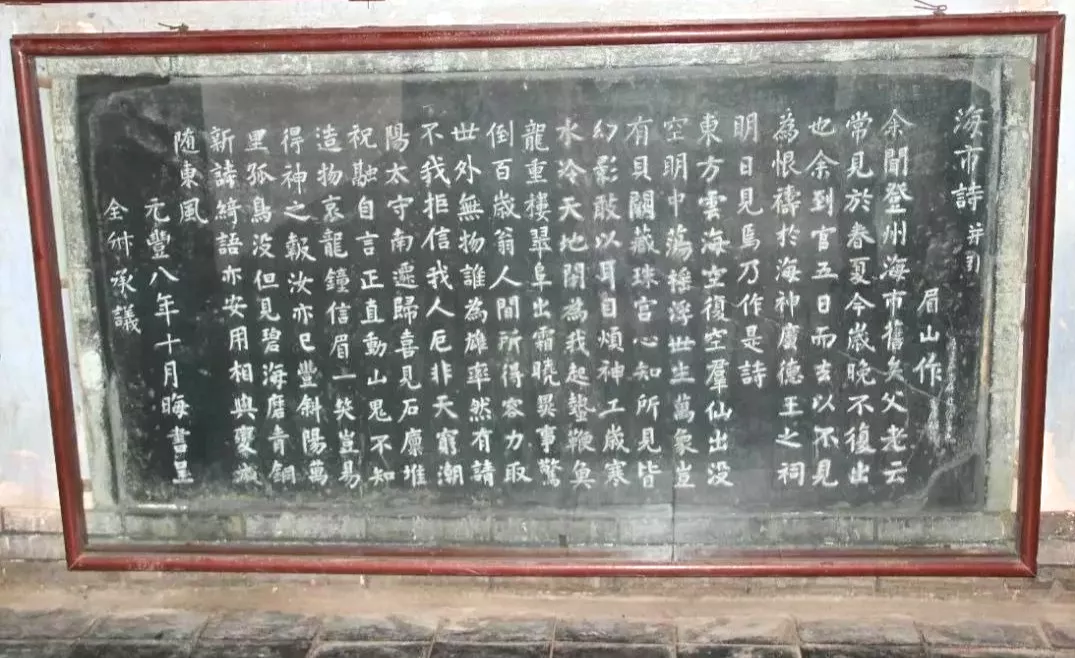 海市詩 并引
眉山作
余聞登州海市舊矣父老云
常見於春夏今歲晚不復出
也余到官五日而去以不見
為恨禱於海神廣德王之祠
明日見焉乃作是詩
東方雲海空復空羣仙出没
空明中蕩摇浮世生萬象豈
有貝闕藏珠宫心知所見皆
幻影敢以耳目煩神工歲寒
水冷天地閉為我起蟄鞭魚
龍重樓翠阜出霜曉異事驚
倒百歲翁人間所得容力取
世外無物誰為雄率然有請
不我拒信我人厄非天窮潮
陽太守南遷歸喜見石廩堆
祝融自言正直動山鬼不知
造物哀龍鐘信眉一笑豈易
得神之報汝亦已豐斜陽萬
里孤鳥没但見碧海磨青銅
新詩綺語亦安用相與變滅
随東風
元豐八年十月晦書呈
全叔承議